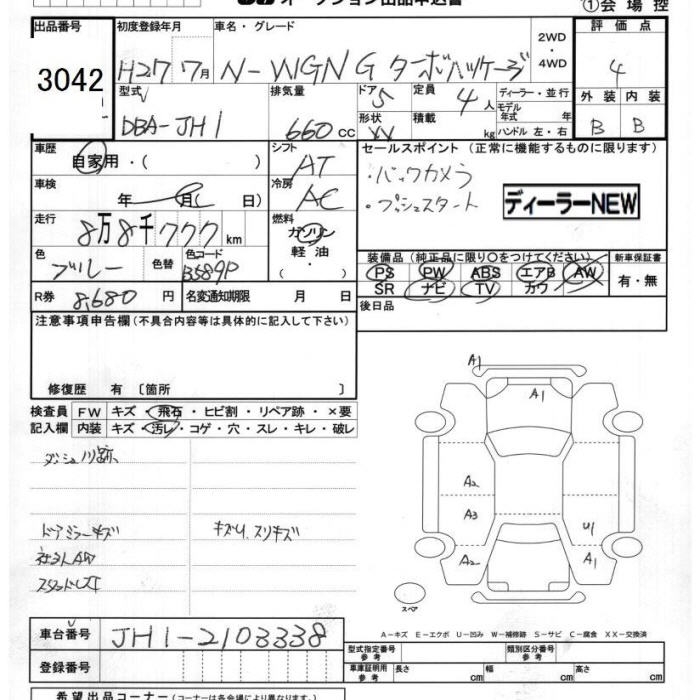 オークション出品申込書
①会場控
出品番号 3042
初度登録年月 H27 7月
車名・グレード N-WGN G ターボパッケージ
2WD・4WD
評価点 4
外装 B 内装 B
型式 DBA-JH1
排気量 660cc
ドア 5 形状 XX
定員 4人 積載 kg
ディーラー・並行
モデル年式 年
ハンドル 左・右
車歴 自家用・( )
シフト AT
セールスポイント (正常に機能するものに限ります)
・バックカメラ
・プッシュスタート
ディーラーNEW
車検 年 月( 日)
冷房 AC
走行 8万8千777km
燃料 ガソリン 軽油 ・( )
色 ブルー 色替
色コード B589P
装備品(純正品に限り○をつけてください)
PS PW ABS エアB AW
SR ナビ TV カワ
新車保証書 有・無
R券 8,680円
名変通知期限 月 日
後日品
注意事項申告欄(不具合内容等は具体的に記入して下さい)
修復歴 有 〔箇所 〕
検査員記入欄
FW キズ・飛石・ヒビ割・リペア跡・×要
内装 キズ・汚レ・コゲ・穴・スレ・キレ・破レ
ドアミラーキズ
キズU、スリキズ
社外AW
A1
A1
A2
A3
A2
U1
A1
スペア
A-キズ E-エクボ U-凹み W-補修跡 S-サビ C-腐食 XX-交換済
車台番号 JH1-2103338
登録番号
型式指定番号 参考
類別区分番号 参考
車庫証明用 参考 長さ cm 幅 cm 高さ cm
希望出品コーナー(コーナーは各会場により異なります)